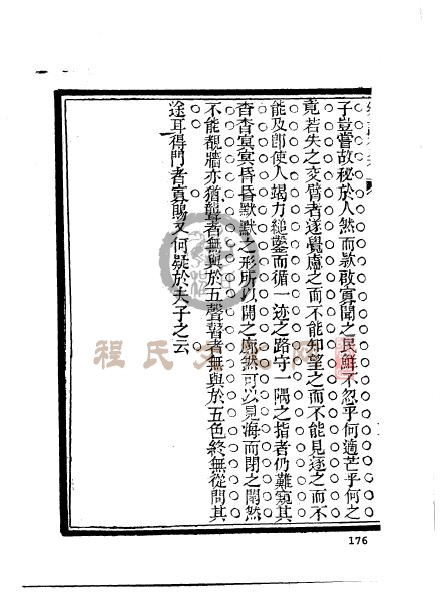 子豈嘗故秘於人然而款啟寡聞之民鮮不忽乎何適芒乎何之
竟若失之交臂者遂覺慮之而不能知望之而不能見逐之而不
能及即使人竭力鎚鑿而循一迹之路守一隅之指者仍難窺其
杳杳冥冥昏昏默默之形所以開之廓然可以見海而閉之闇然
不能覩牆亦猶聾者無與於五聲瞽者無與於五色終無從問其
途耳得門者寡賜又何疑於夫子之云
程氏文化
176